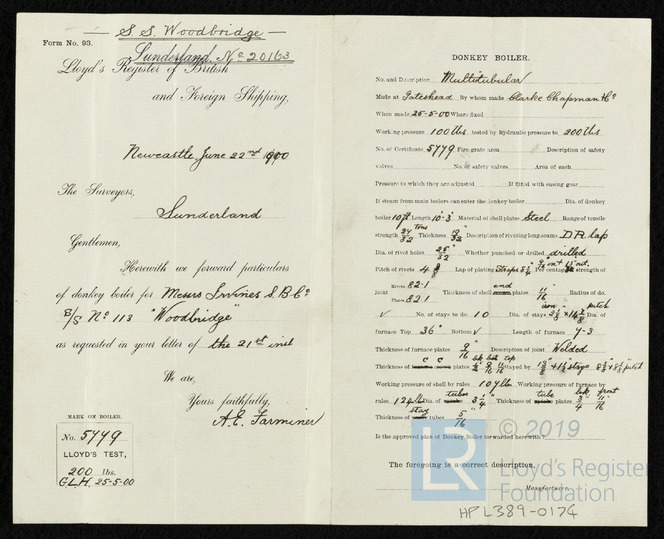 S.S. Woodbridge
Form No. 93.
Sunderland. No 20163
Lloyd's Register of British
and Foreign Shipping,
Newcastle June 22nd 1900
The Surveyors,
Sunderland
Gentlemen,
Herewith we forward particulars
of donkey boiler for Messrs Irvines S.B. Co
E/S No 113 "Woodbridge"
as requested in your letter of the 21st inst
We are,
Yours faithfully,
A.E. Farminer
MARK ON BOILER.
No. 5779
LLOYD'S TEST,
200 lbs.
G.L.H. 25-5-00
DONKEY BOILER.
No. and Description Multitubular
Made at Gateshead By whom made Clarke Chapman & Co
When made 25-5-00 Where fixed
Working pressure 100 lbs tested by hydraulic pressure to 200 lbs
No. of Certificate 5779 Fire grate area Description of safety
valves No. of safety valves Area of each
Pressure to which they are adjusted If fitted with easing gear
If steam from main boilers can enter the donkey boiler Dia. of donkey
boiler 10ft Length 10'-3" Material of shell plates Steel Range of tensile
strength Thickness Description of riveting long. seams D R lap
Dia. of rivet holes Whether punched or drilled drilled
Pitch of rivets Lap of plating straps Per centage strength of
joint Rivets 82.1 Thickness of shell end plates 11/16" Radius of do.
Plates 82.1
No. of stays to do. 10 Dia. of stays iron pitch Dia. of
furnace Top 36" Bottom Length of furnace 7-3
Thickness of furnace plates 9/16" Description of joint Welded
Thickness of C C plates Stayed by stays pitch
Working pressure of shell by rules 107 lbs Working pressure of furnace by
rules 124 lbs Dia. of tubes 3 1/4" Thickness of tube plates bk 3/4" front 11/16"
Thickness of stay tubes 5/16"
Is the approved plan of Donkey Boiler forwarded herewith?
The foregoing is a correct description.
Manufacturer.
© 2019
LR
Lloyd's Register
Foundation
HPL389-0174